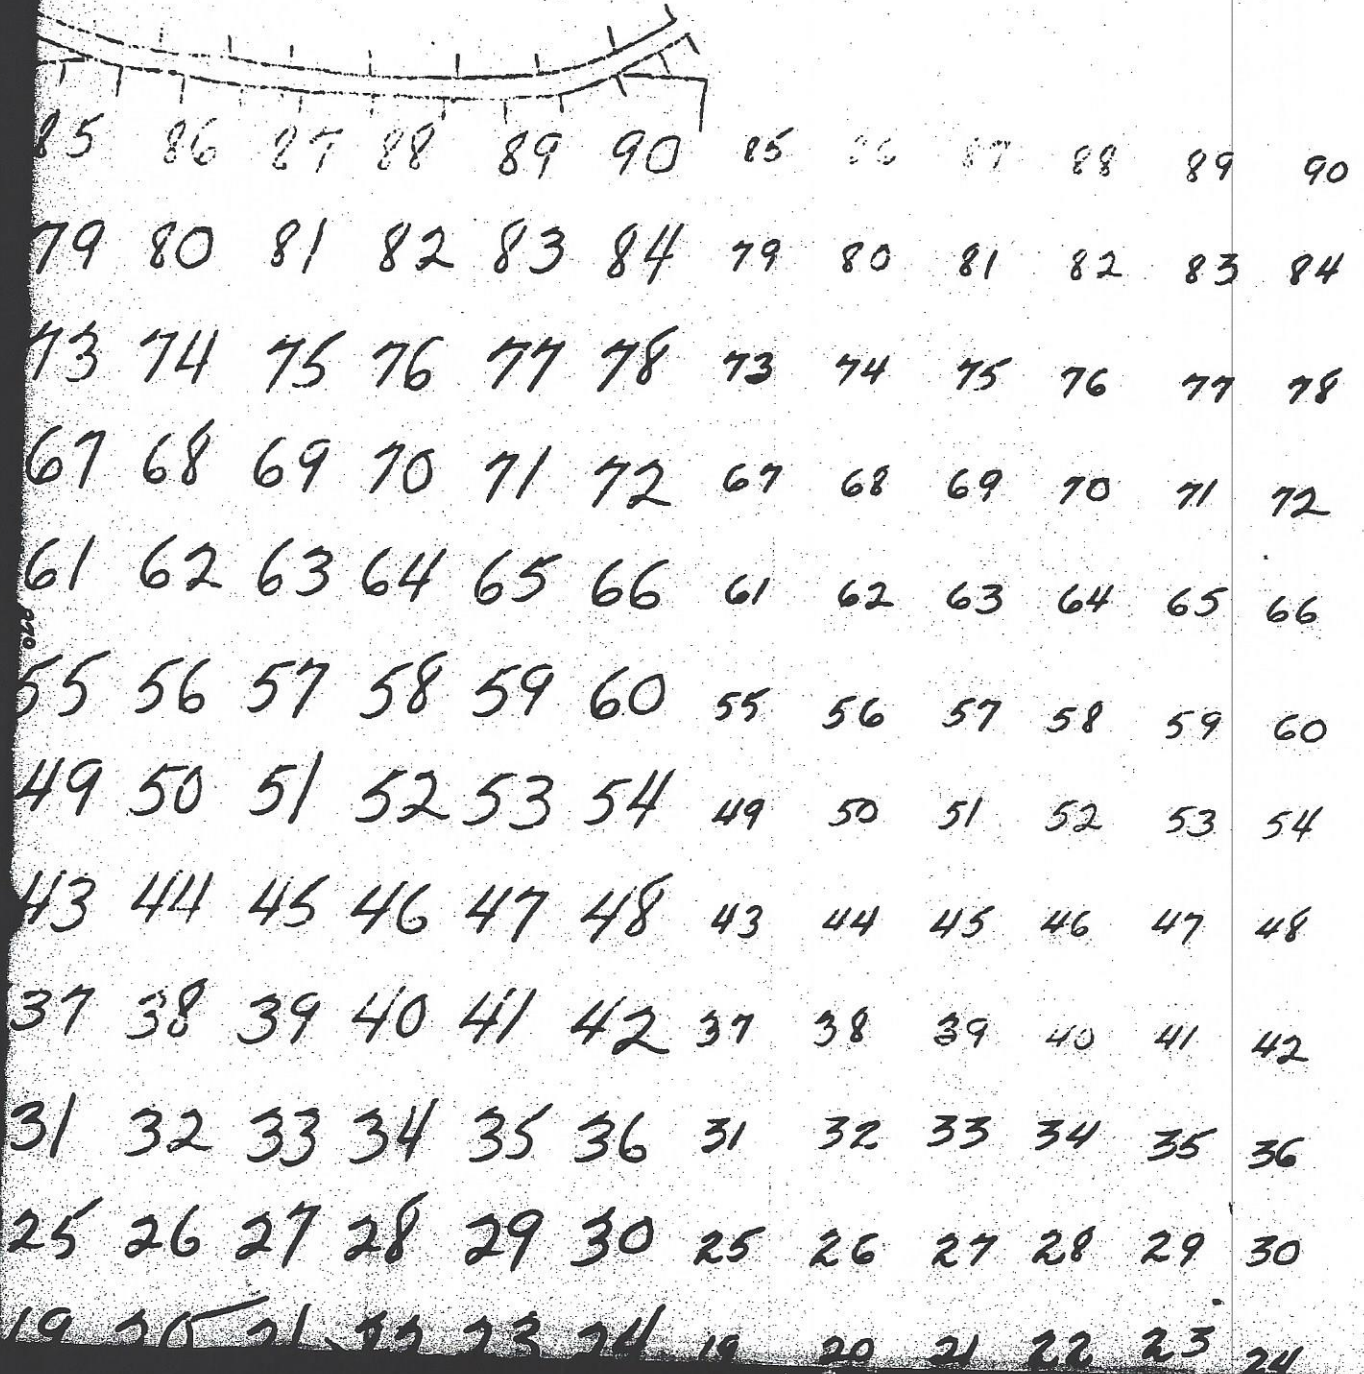 85 86 87 88 89 90 85 86 87 88 89 90
79 80 81 82 83 84 79 80 81 82 83 84
73 74 75 76 77 78 73 74 75 76 77 78
67 68 69 70 71 72 67 68 69 70 71 72
61 62 63 64 65 66 61 62 63 64 65 66
55 56 57 58 59 60 55 56 57 58 59 60
49 50 51 52 53 54 49 50 51 52 53 54
43 44 45 46 47 48 43 44 45 46 47 48
37 38 39 40 41 42 37 38 39 40 41 42
31 32 33 34 35 36 31 32 33 34 35 36
25 26 27 28 29 30 25 26 27 28 29 30
19 20 21 22 23 24 19 20 21 22 23 24